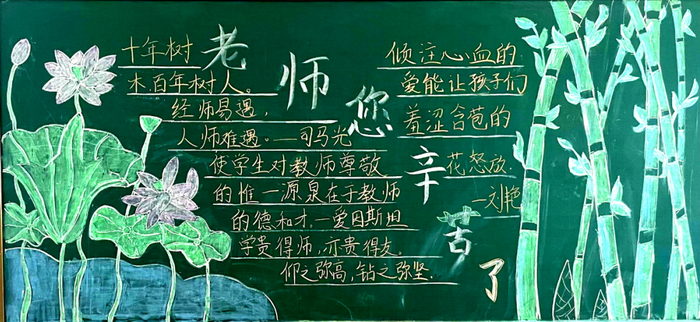 老师您辛苦了
十年树
木,百年树人。
经师易遇,
人师难遇。——司马光
使学生对教师尊敬
的惟一源泉在于教师
的德和才。—爱因斯坦
学贵得师,亦贵得友。
仰之弥高,钻之弥坚。
倾注心血的
爱能让孩子们
羞涩含苞的
花怒放
—刘艳